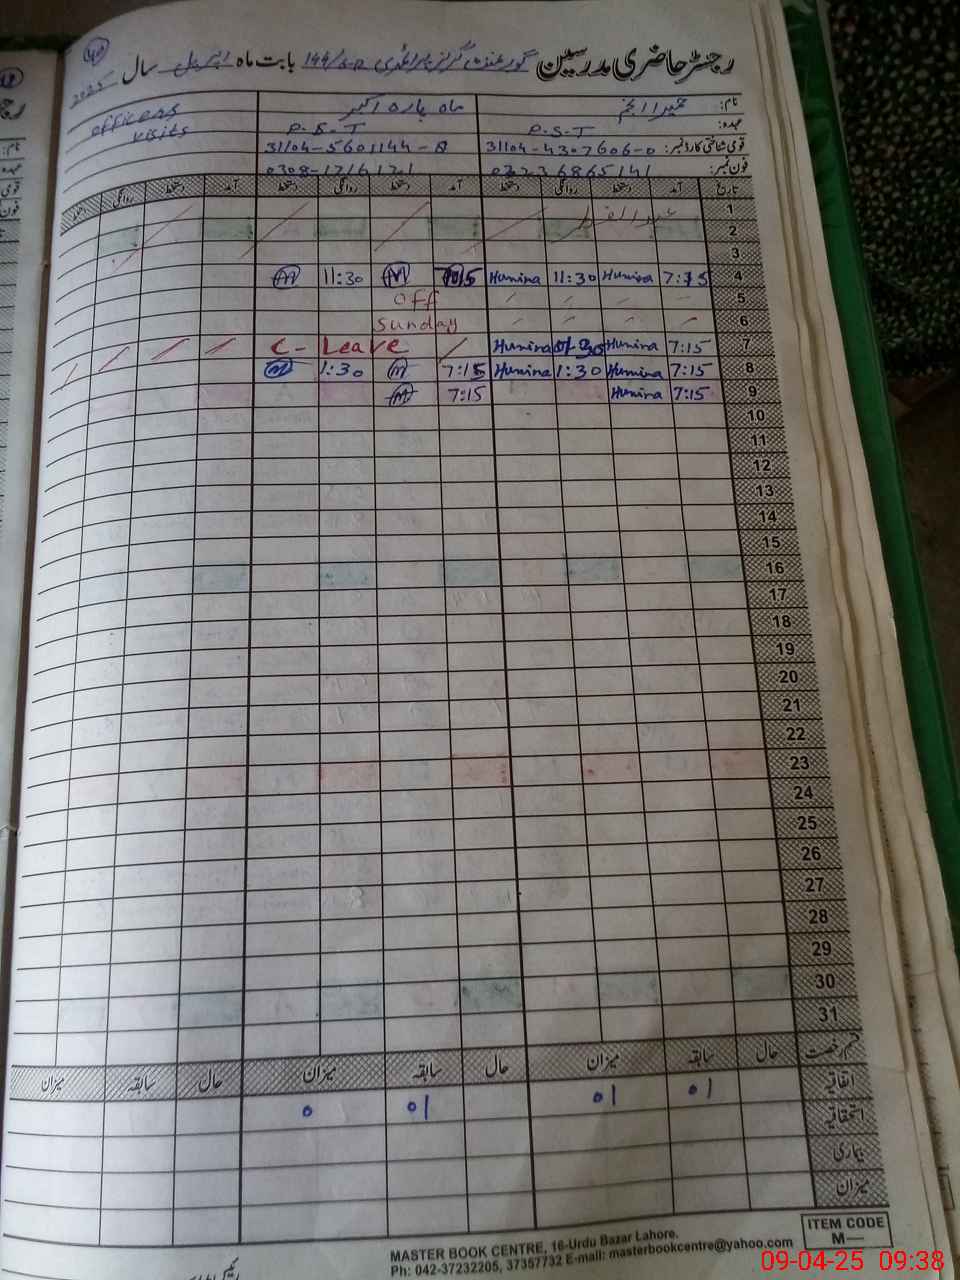 40
رجسٹر حاضری مدرسین گورنمنٹ گرلز پرائمری 144/6-R بابت ماہ اپریل سال 2025
نام: حمیرا انجم ماہ پارہ اکبر officers visits
عہدہ: P.S.T P.S.T
قومی شناختی کارڈ نمبر: 31104-4307606-0 31104-5601144-8
فون نمبر:
تاریخ آمد دستخط روانگی دستخط آمد دستخط روانگی دستخط آمد دستخط روانگی دستخط
1 عید الفطر
2
3
4 7:15 Humira 11:30 Humira 7:15 M 11:30 M
5 off
6 Sunday
7 7:15 Humina Humina C- Leave
8 7:15 Humina 1:30 Humina 7:15 M 1:30 M
9 7:15 Humina 7:15 M
10
11
12
13
14
15
16
17
18
19
20
21
22
23
24
25
26
27
28
29
30
31
قسم رخصت حال سابقہ میزان حال سابقہ میزان حال سابقہ میزان
اتفاقیہ 01 01 01 0
استحقاقیہ
بیماری
میزان
ITEM CODE
M—
MASTER BOOK CENTRE, 16-Urdu Bazar Lahore.
Ph: 042-37232205, 37357732 E-mail: masterbookcentre@yahoo.com
09-04-25 09:38